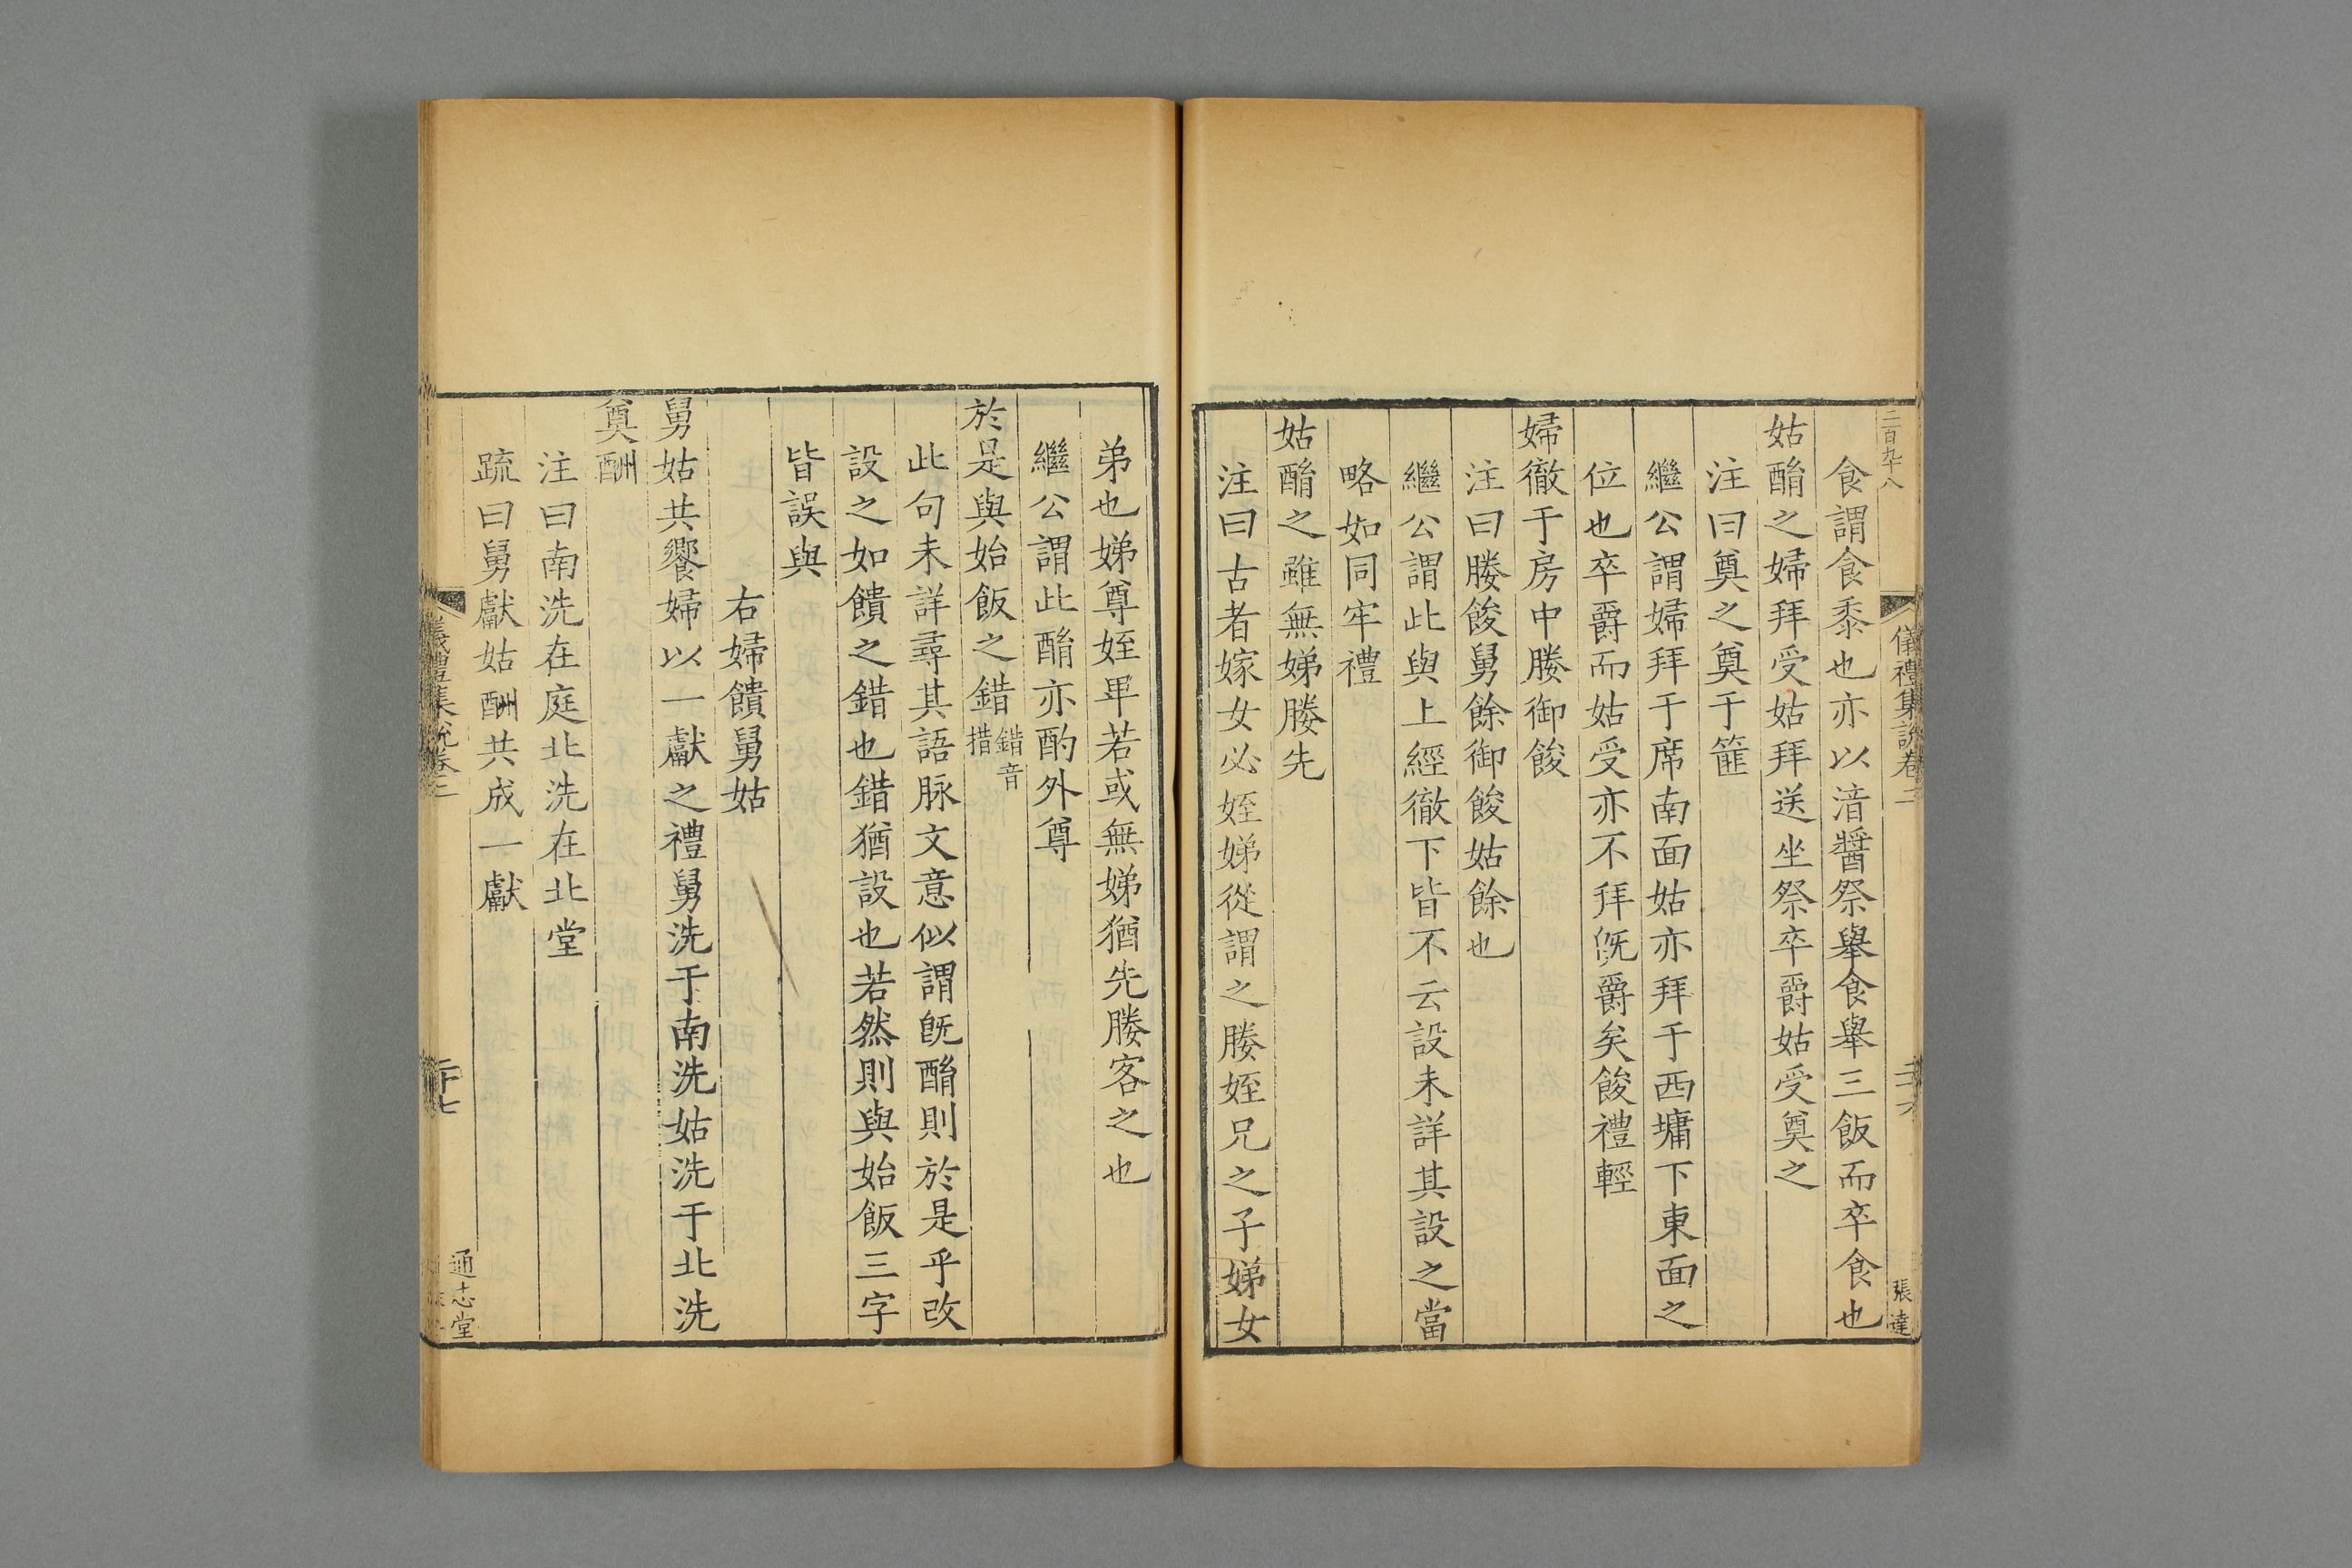 二百九十八
儀禮集說卷二
張達
食謂食黍也亦以湆醬祭舉食舉三飯而卒食也
姑酳之婦拜受姑拜送坐祭卒爵姑受奠之
注曰奠之奠于篚
繼公謂婦拜于席南面姑亦拜于西墉下東面之
位也卒爵而姑受亦不拜旣爵矣餕禮輕
婦徹于房中媵御餕
注曰媵餕舅餘御餕姑餘也
繼公謂此與上經徹下皆不云設未詳其設之當
略如同牢禮
姑酳之雖無娣媵先
注曰古者嫁女必姪娣從謂之媵姪兄之子娣女
弟也娣尊姪卑若或無娣猶先媵客之也
繼公謂此酳亦酌外尊
於是與始飯之錯錯音措
此句未詳尋其語脉文意似謂旣酳則於是乎改
設之如饋之錯也錯猶設也若然則與始飯三字
皆誤與
右婦饋舅姑
舅姑共饗婦以一獻之禮舅洗于南洗姑洗于北洗
奠酬
注曰南洗在庭北洗在北堂
疏曰舅獻姑酬共成一獻
儀禮集說卷二
二十七
通志堂